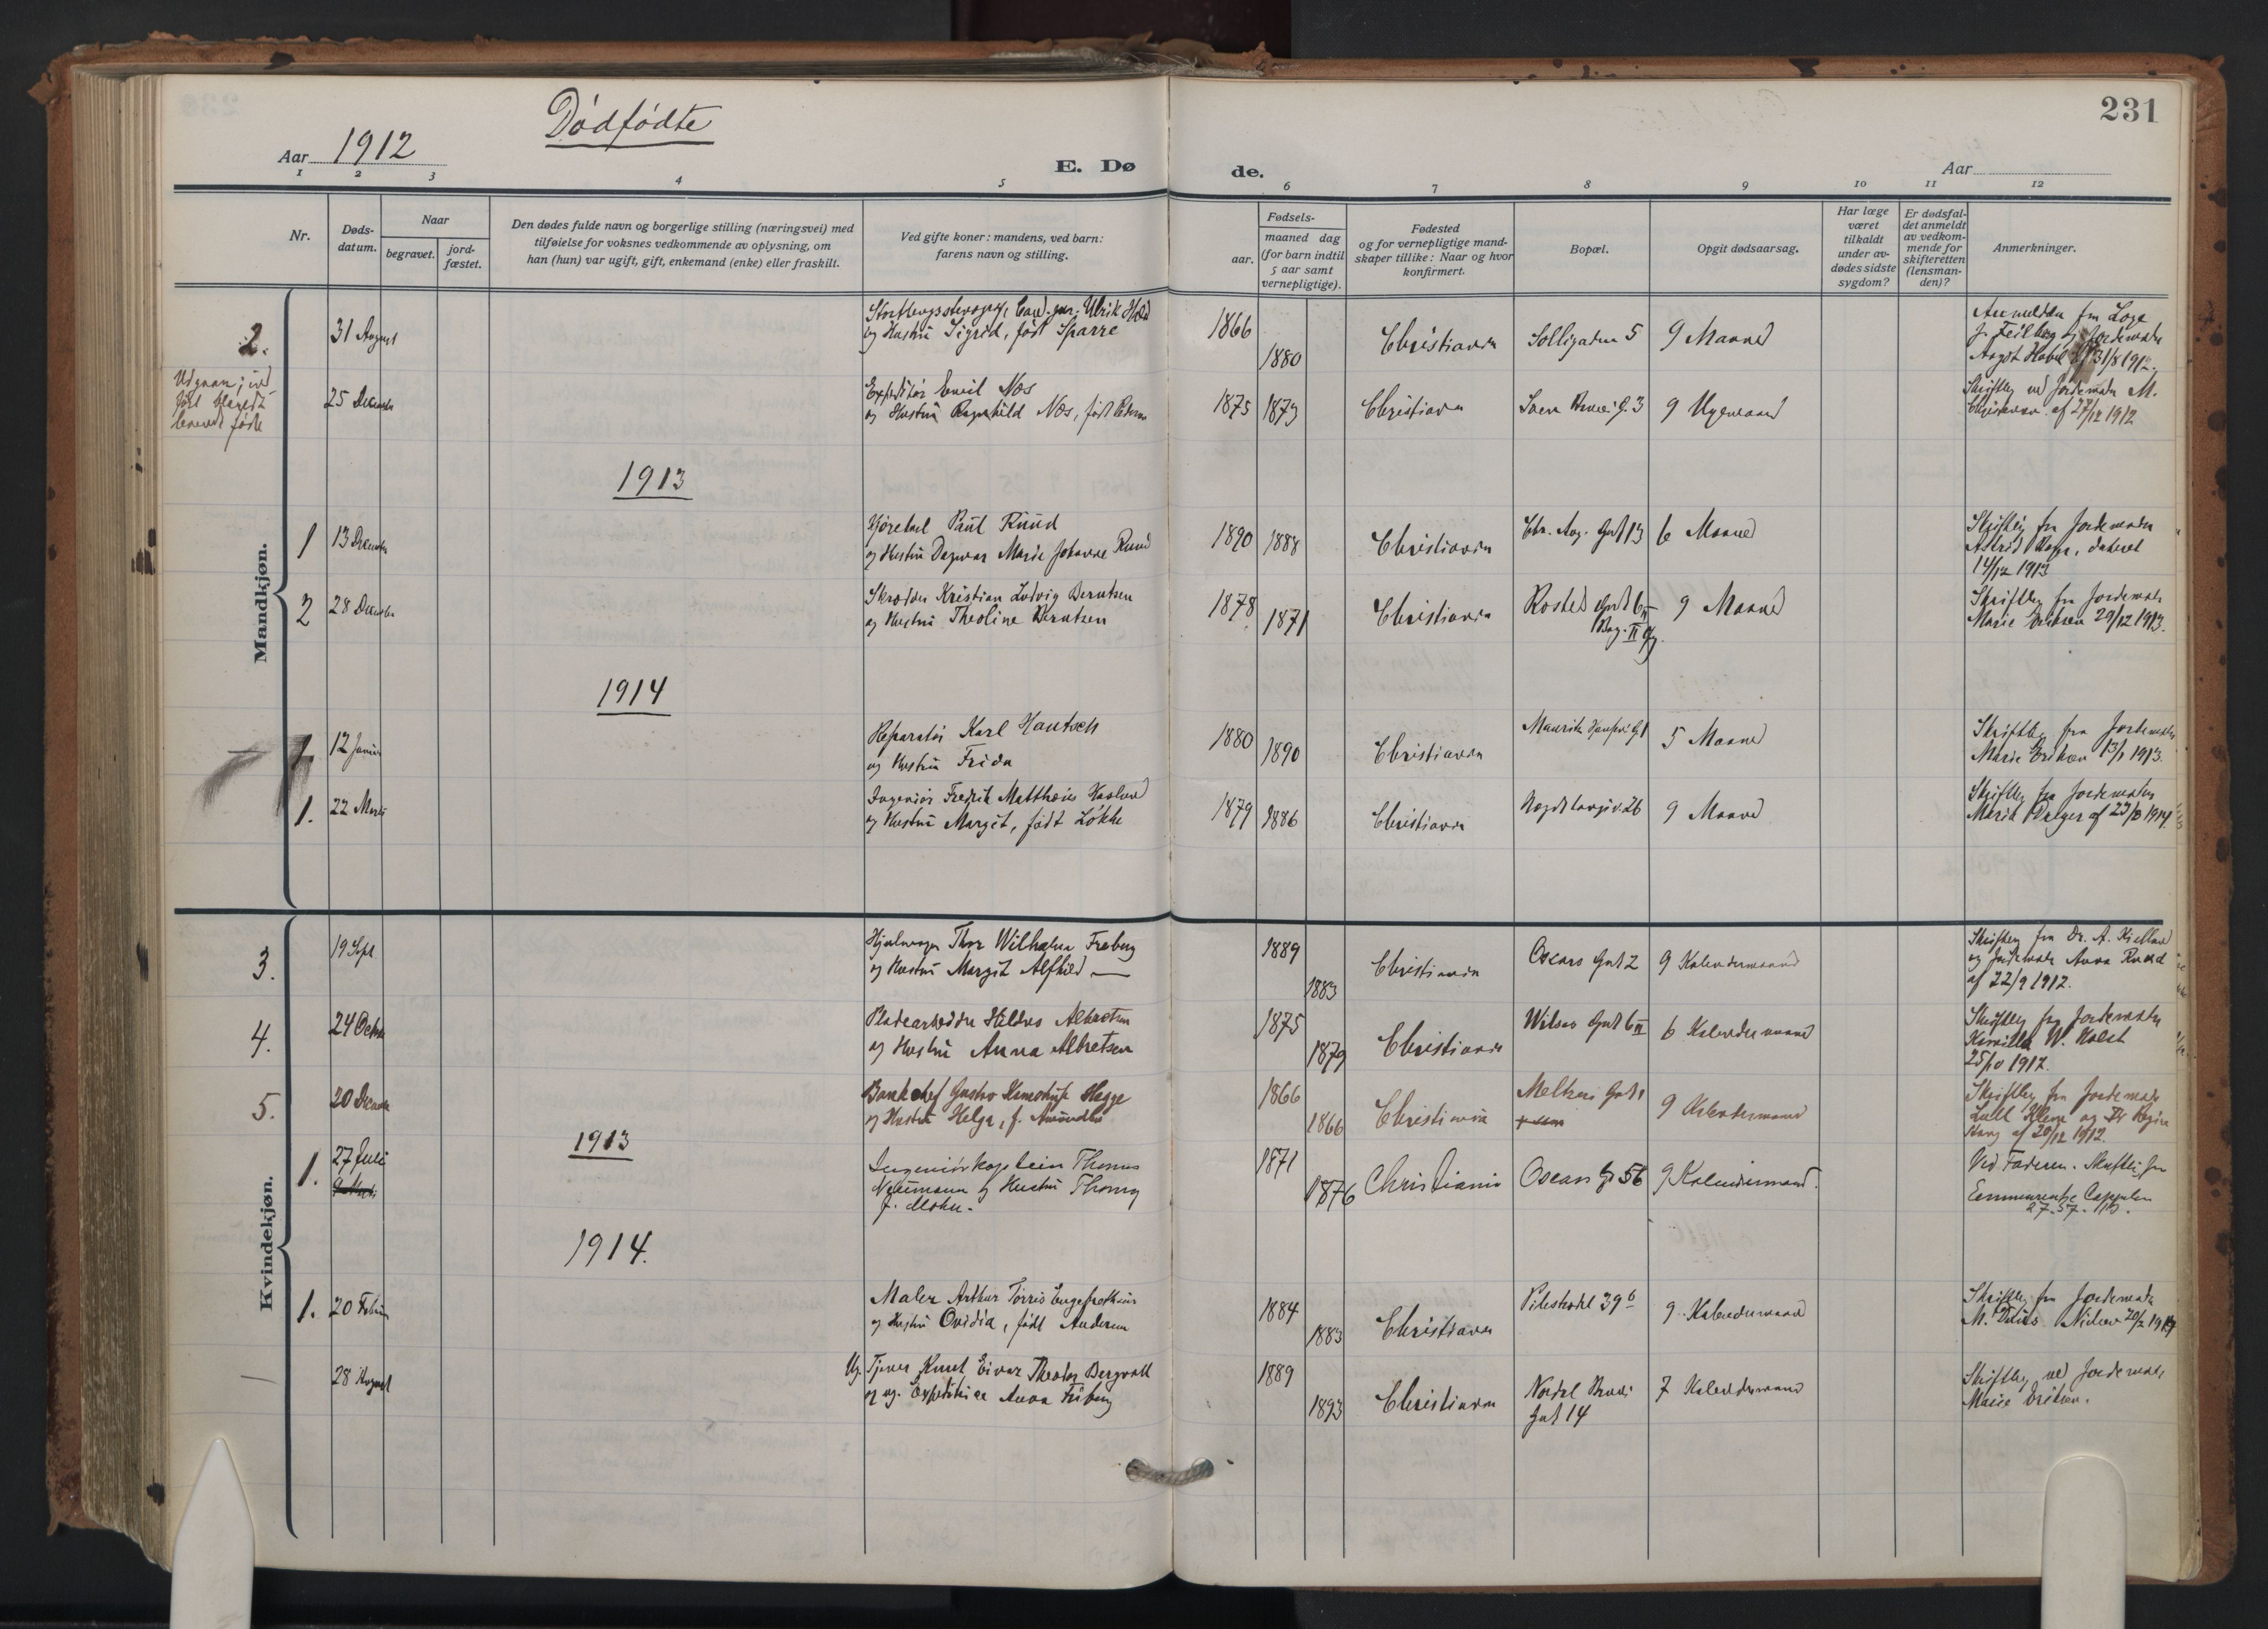 231
Dødfødte
Aar 1912
E. Dø de.
Aar
1 2 3 4 5 6 7 8 9 10 11 12
Nr.
Døds-
datum.
Naar
begravet.
jord-
fæstet.
Den dødes fulde navn og borgerlige stilling (næringsvei) med
tilføielse for voksnes vedkommende av oplysning, om
han (hun) var ugift, gift, enkemand (enke) eller fraskilt.
Ved gifte koner: mandens, ved barn:
farens navn og stilling.
Fødsels-
aar.
maaned dag
(for barn indtil
5 aar samt
vernepligtige).
Fødested
og for vernepligtige mand-
skaper tillike: Naar og hvor
konfirmert.
Bopæl.
Opgit dødsaarsag.
Har læge
været
tilkaldt
under av-
dødes sidste
sygdom?
Er dødsfal-
det anmeldt
av vedkom-
mende for
skifteretten
(lensman-
den)?
Anmerkninger.
Mandkjøn.
2.
31 August
Ulrik
og Hustru Sigrid, født Sparre
1866
1880
Christiania
Solligaden 5
9 Maaned
31/8 1912.
levende fødte
25 December
Expeditør Emil Næs
og Hustru Ragnhild Næs, født
1875 1879
Christiania
9
Skriftlig ved Jordemoder M.
af 27/12 1912
1913
1
13 December
Paul Ruud
og Hustru Dagmar Marie Johanne Ruud
1890 1888
Christiania
Chr. Aug. Gad 13
6 Maaned
Skriftlig fra Jordemoder
Astrid
14/12 1913
2
28 December
Skrædder Kristian Ludvig Berntsen
og Hustru Theoline Berntsen
1878
1871
Christiania
Rosteds Gad 6 II
9 Maaned
Skriftlig fra Jordemoder
Marie Eriksen 29/12 1913.
1914
1
12 Januar
Reparatør Karl Hantsch
og Hustru Frida
1880
1890
Christiania
5 Maaned
Skriftlig fra Jordemoder
Marie Eriksen 13/1 1913.
1.
22 Marts
Ingeniør Fredrik Matthæus
og Hustru Margit, født Løkke
1879 1886
Christiania
26
9 Maaned
Skriftlig fra Jordemoder
1914.
Kvindekjøn.
3.
19 Sept.
Thor Wilhelm Freberg
og Hustru Margit Alfhild —
1889
1883
Christiania
Oscars Gad 2
9 Kalendermaaned
Skriftlig fra Dr. A. Kielland
og Jordemoder Anna Ruud
af 22/9 1912.
4.
24 October
Albretsen
og Hustru Anna Albretsen
1875
1879
Christiania
Wilses Gad 6 II
6 Kalendermaaned
Skriftlig fra Jordemoder
Kamilla W. Holst
25/10 1912.
5.
20 December
Bankchef Gustav Kamstrup Hegge
og Hustru Helga, f. Amundsen
1866
1866
Christiania
Meltzers Gad 1
9 Kalendermaaned
Skriftlig fra Jordemoder
af 20/12 1912.
1913
1.
27 Juli
Ingeniørkaptein Thomas
Neumann og Hustru Thomy
f. Mohn.
1871
1876
Christiania
Oscars G. 56
9 Kalendermaaned.
Ved Faderen. Skriftlig fra
Cappelen
1914.
1.
20 Februar
Maler Arthur
og Hustru Ovidia, født Andersen
1884
1883
Christiania
Pilestrædet 39 b
9 Kalendermaaned
Skriftlig fra Jordemoder
Nielsen 20/2 1914
28 August
Ug. Tjener Knut Einar Theodor Bergvall
og ug. Expeditrice Anna Friberg
1889
1893
Christiania
Nordal Bruns
Gad 14
7 Kalendermaaned
Skriftlig ved Jordemoder
Marie Eriksen.